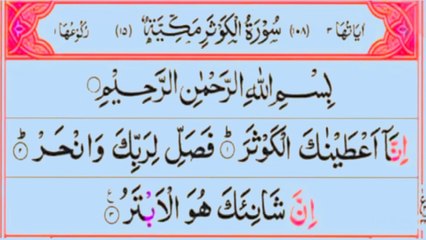 اٰیَاتُهَا ۳ (۱۰۸) سُوْرَةُ الْكَوْثَرِ مَكِّيَّةٌ (۱۵) رُكُوْعُهَا ۱
بِسْمِ اللهِ الرَّحْمٰنِ الرَّحِيْمِ
اِنَّاۤ اَعْطَيْنٰكَ الْكَوْثَرَ ۱ فَصَلِّ لِرَبِّكَ وَانْحَرْ ۲
اِنَّ شَانِئَكَ هُوَ الْاَبْتَرُ ۳